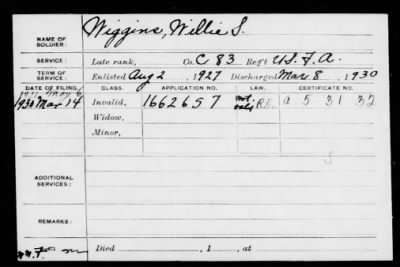 NAME OF SOLDIER: Wiggins, Willie S.
SERVICE: Late rank, Co. C 83 Reg't U.S.F.A.
TERM OF SERVICE: Enlisted Aug 2, 1927 Discharged Mar 8, 1930
DATE OF FILING. CLASS. APPLICATION NO. LAW. CERTIFICATE NO.
1930 Mar 14 Invalid, 1662657 R.E. A 5 31 32
Widow,
Minor,
ADDITIONAL SERVICES:
REMARKS:
Died , 1 , at